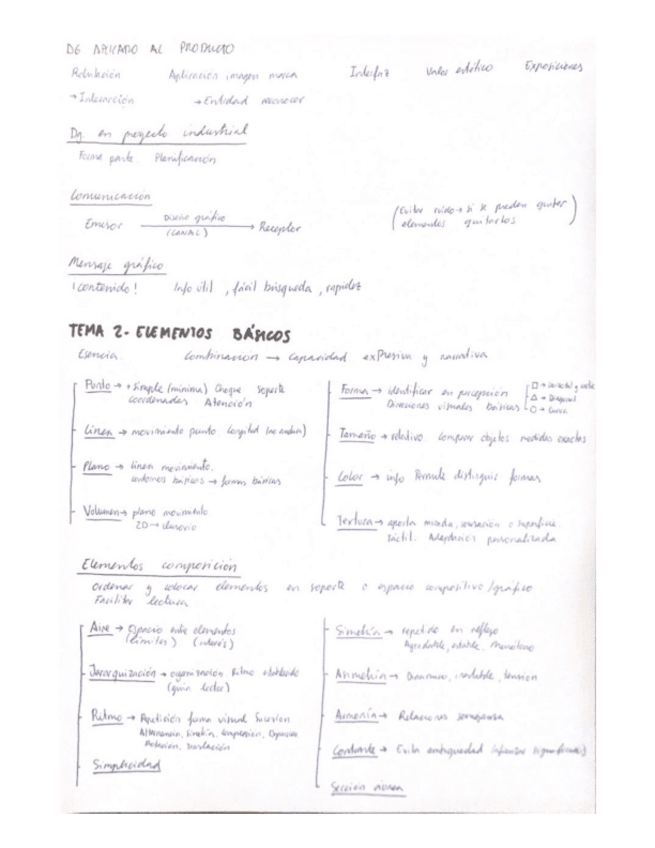 DG APLICADO AL PRODUCTO
Rotulación Aplicación imagen marca Interfaz Valor estético Exposiciones
→ Interacción → Entidad reconocer
Dg. en proyecto industrial
Forma parte Planificación
Comunicación
Emisor Diseño gráfico (CANAL) → Receptor (Evitar ruido → si se pueden quitar
elementos quitarlos)
Mensaje gráfico
¡contenido! Info útil, fácil búsqueda, rapidez
TEMA 2- ELEMENTOS BÁSICOS
Esencia Combinación → Capacidad expresiva y narrativa
Punto → + simple (mínima) Choque soporte
coordenadas Atención
Línea → movimiento punto. Longitud
Plano → línea movimiento.
contornos básicos → formas básicas
Volumen → plano movimiento
2D →
Forma → identificar en percepción
Direcciones visuales básicas
□ →
△ → Diagonal
○ → Curva
Tamaño → relativo. Comparar objetos medidas exactas
Color → info Permite distinguir formas
Textura → aporta mirada, sensación o superficie
táctil. Adaptación personalizada
Elementos composición
Ordenar y colocar elementos en soporte o espacio compositivo/gráfico
Facilitar lectura
Aire → Espacio entre elementos
(límites) (interés)
Jerarquización → organización. Ritmo
(guía lector)
Ritmo → Repetición forma visual Sucesión
Alternancia, Simetría,
Rotación, traslación
Simplicidad
Simetría → repetido en reflejo
Agradable, estable, monótono
Asimetría → Dinamismo, inestable, tensión
Armonía → Relaciones semejanza
Contraste → Evita ambigüedad
Sección áurea